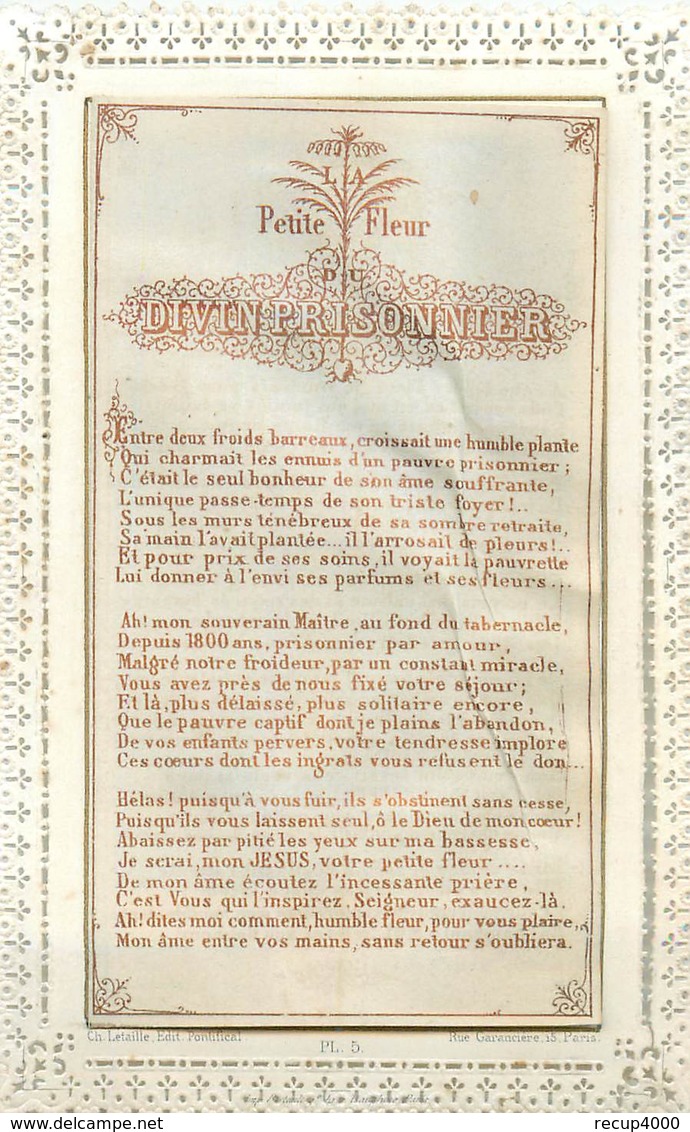 LA
Petite Fleur
DU
DIVIN PRISONNIER
Entre deux froids barreaux, croissait une humble plante
Qui charmait les ennuis d'un pauvre prisonnier;
C'était le seul bonheur de son âme souffrante,
L'unique passe-temps de son triste foyer!..
Sous les murs ténébreux de sa sombre retraite,
Sa main l'avait plantée... il l'arrosait de pleurs!..
Et pour prix de ses soins, il voyait la pauvrette
Lui donner à l'envi ses parfums et ses fleurs...
Ah! mon souverain Maître, au fond du tabernacle,
Depuis 1800 ans, prisonnier par amour,
Malgré notre froideur, par un constant miracle,
Vous avez près de nous fixé votre séjour;
Et là, plus délaissé, plus solitaire encore,
Que le pauvre captif dont je plains l'abandon,
De vos enfants pervers, votre tendresse implore
Ces cœurs dont les ingrats vous refusent le don...
Hélas! puisqu'à vous fuir, ils s'obstinent sans cesse,
Puisqu'ils vous laissent seul, ô le Dieu de mon cœur!
Abaissez par pitié les yeux sur ma bassesse,
Je serai, mon JESUS, votre petite fleur....
De mon âme écoutez l'incessante prière,
C'est Vous qui l'inspirez, Seigneur, exaucez-là.
Ah! dites moi comment, humble fleur, pour vous plaire,
Mon âme entre vos mains, sans retour s'oubliera.
Ch. Letaille, Edit. Pontifical. Rue Garancière, 15, Paris.
PL. 5.
recup4000